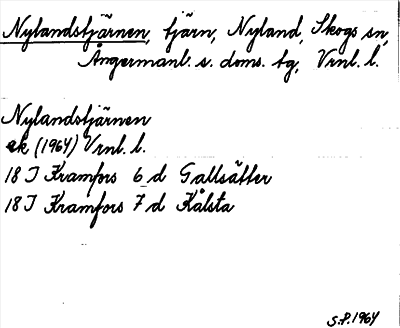 Nylandstjärnen, tjärn, Nyland, Skogs sn,
Ångermanl. s. doms. tg, Vrnl. l.
Nylandstjärnen
ek (1964) Vrnl. l.
18 J Kramfors 6 d Gallsätter
18 J Kramfors 7 d Kålsta
S.P. 1964